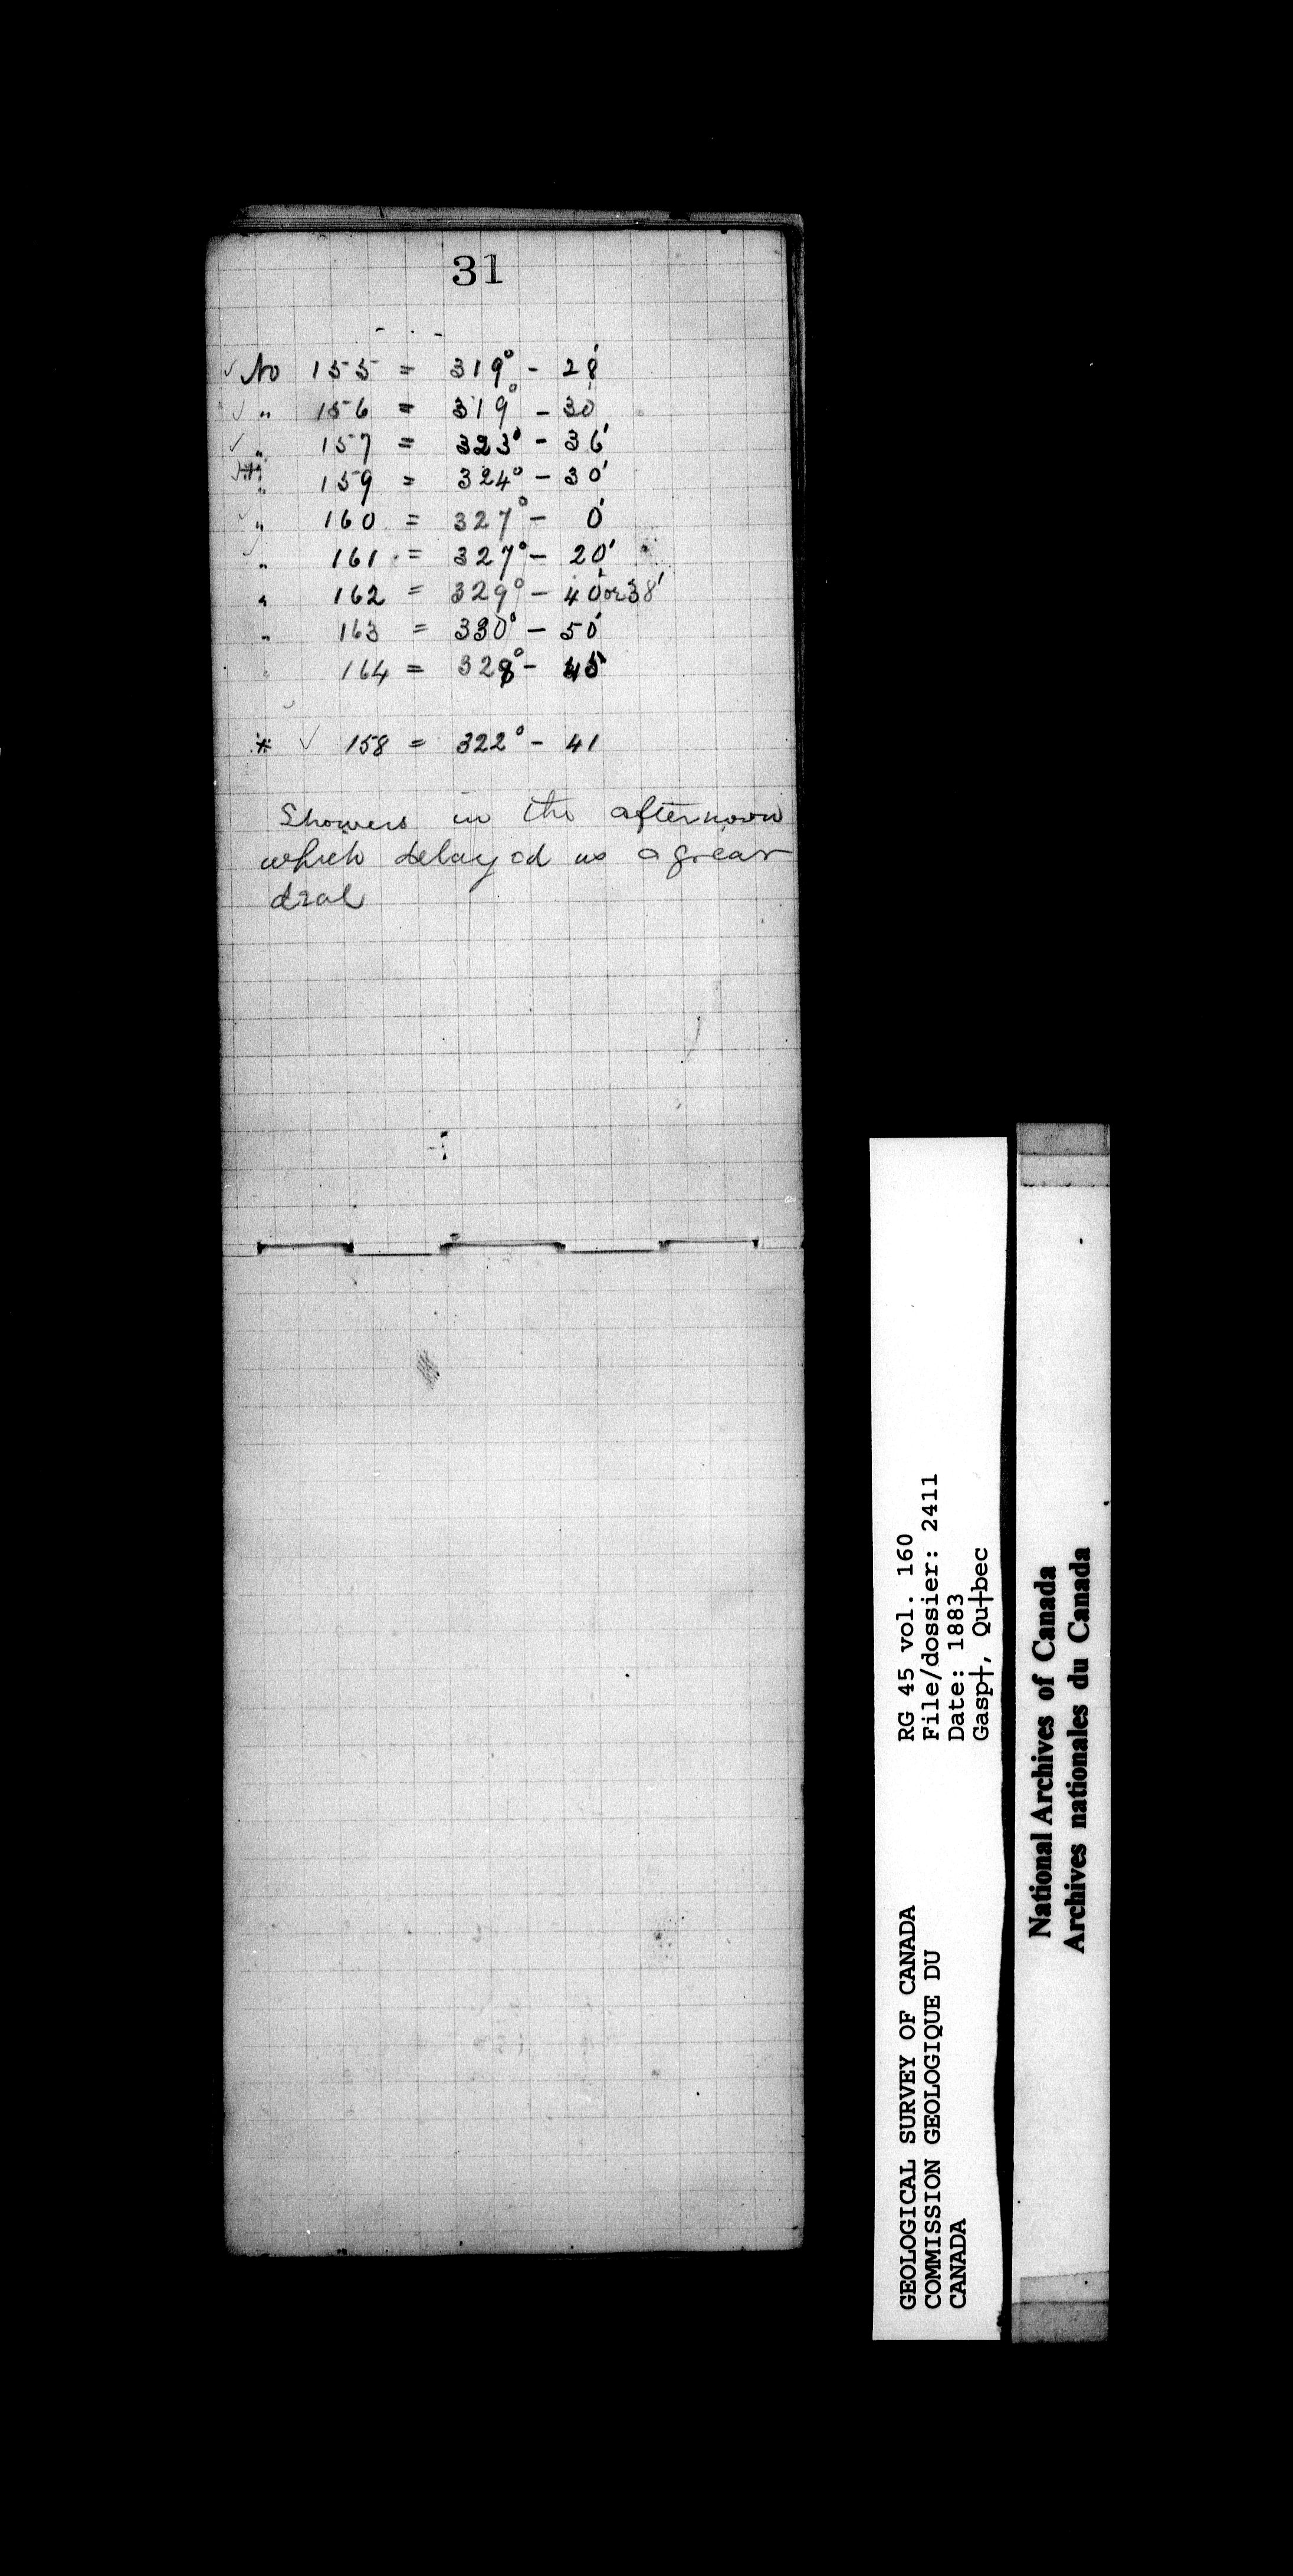 31
✓ No 155 = 319° - 28'
✓ " 156 = 319° - 30'
✓ " 157 = 323° - 36'
✓* " 159 = 324° - 30'
✓ " 160 = 327° - 0'
✓ " 161 = 327° - 20'
" 162 = 329° - 40' or 38'
" 163 = 330° - 50'
" 164 = 328° - 45'
* ✓ 158 = 322° - 41
Showers in the afternoon
which delayed us a great
deal
RG 45 vol. 160
File/dossier: 2411
Date: 1883
Gasp†, Qu†bec
GEOLOGICAL SURVEY OF CANADA
COMMISSION GEOLOGIQUE DU
CANADA
National Archives of Canada
Archives nationales du Canada